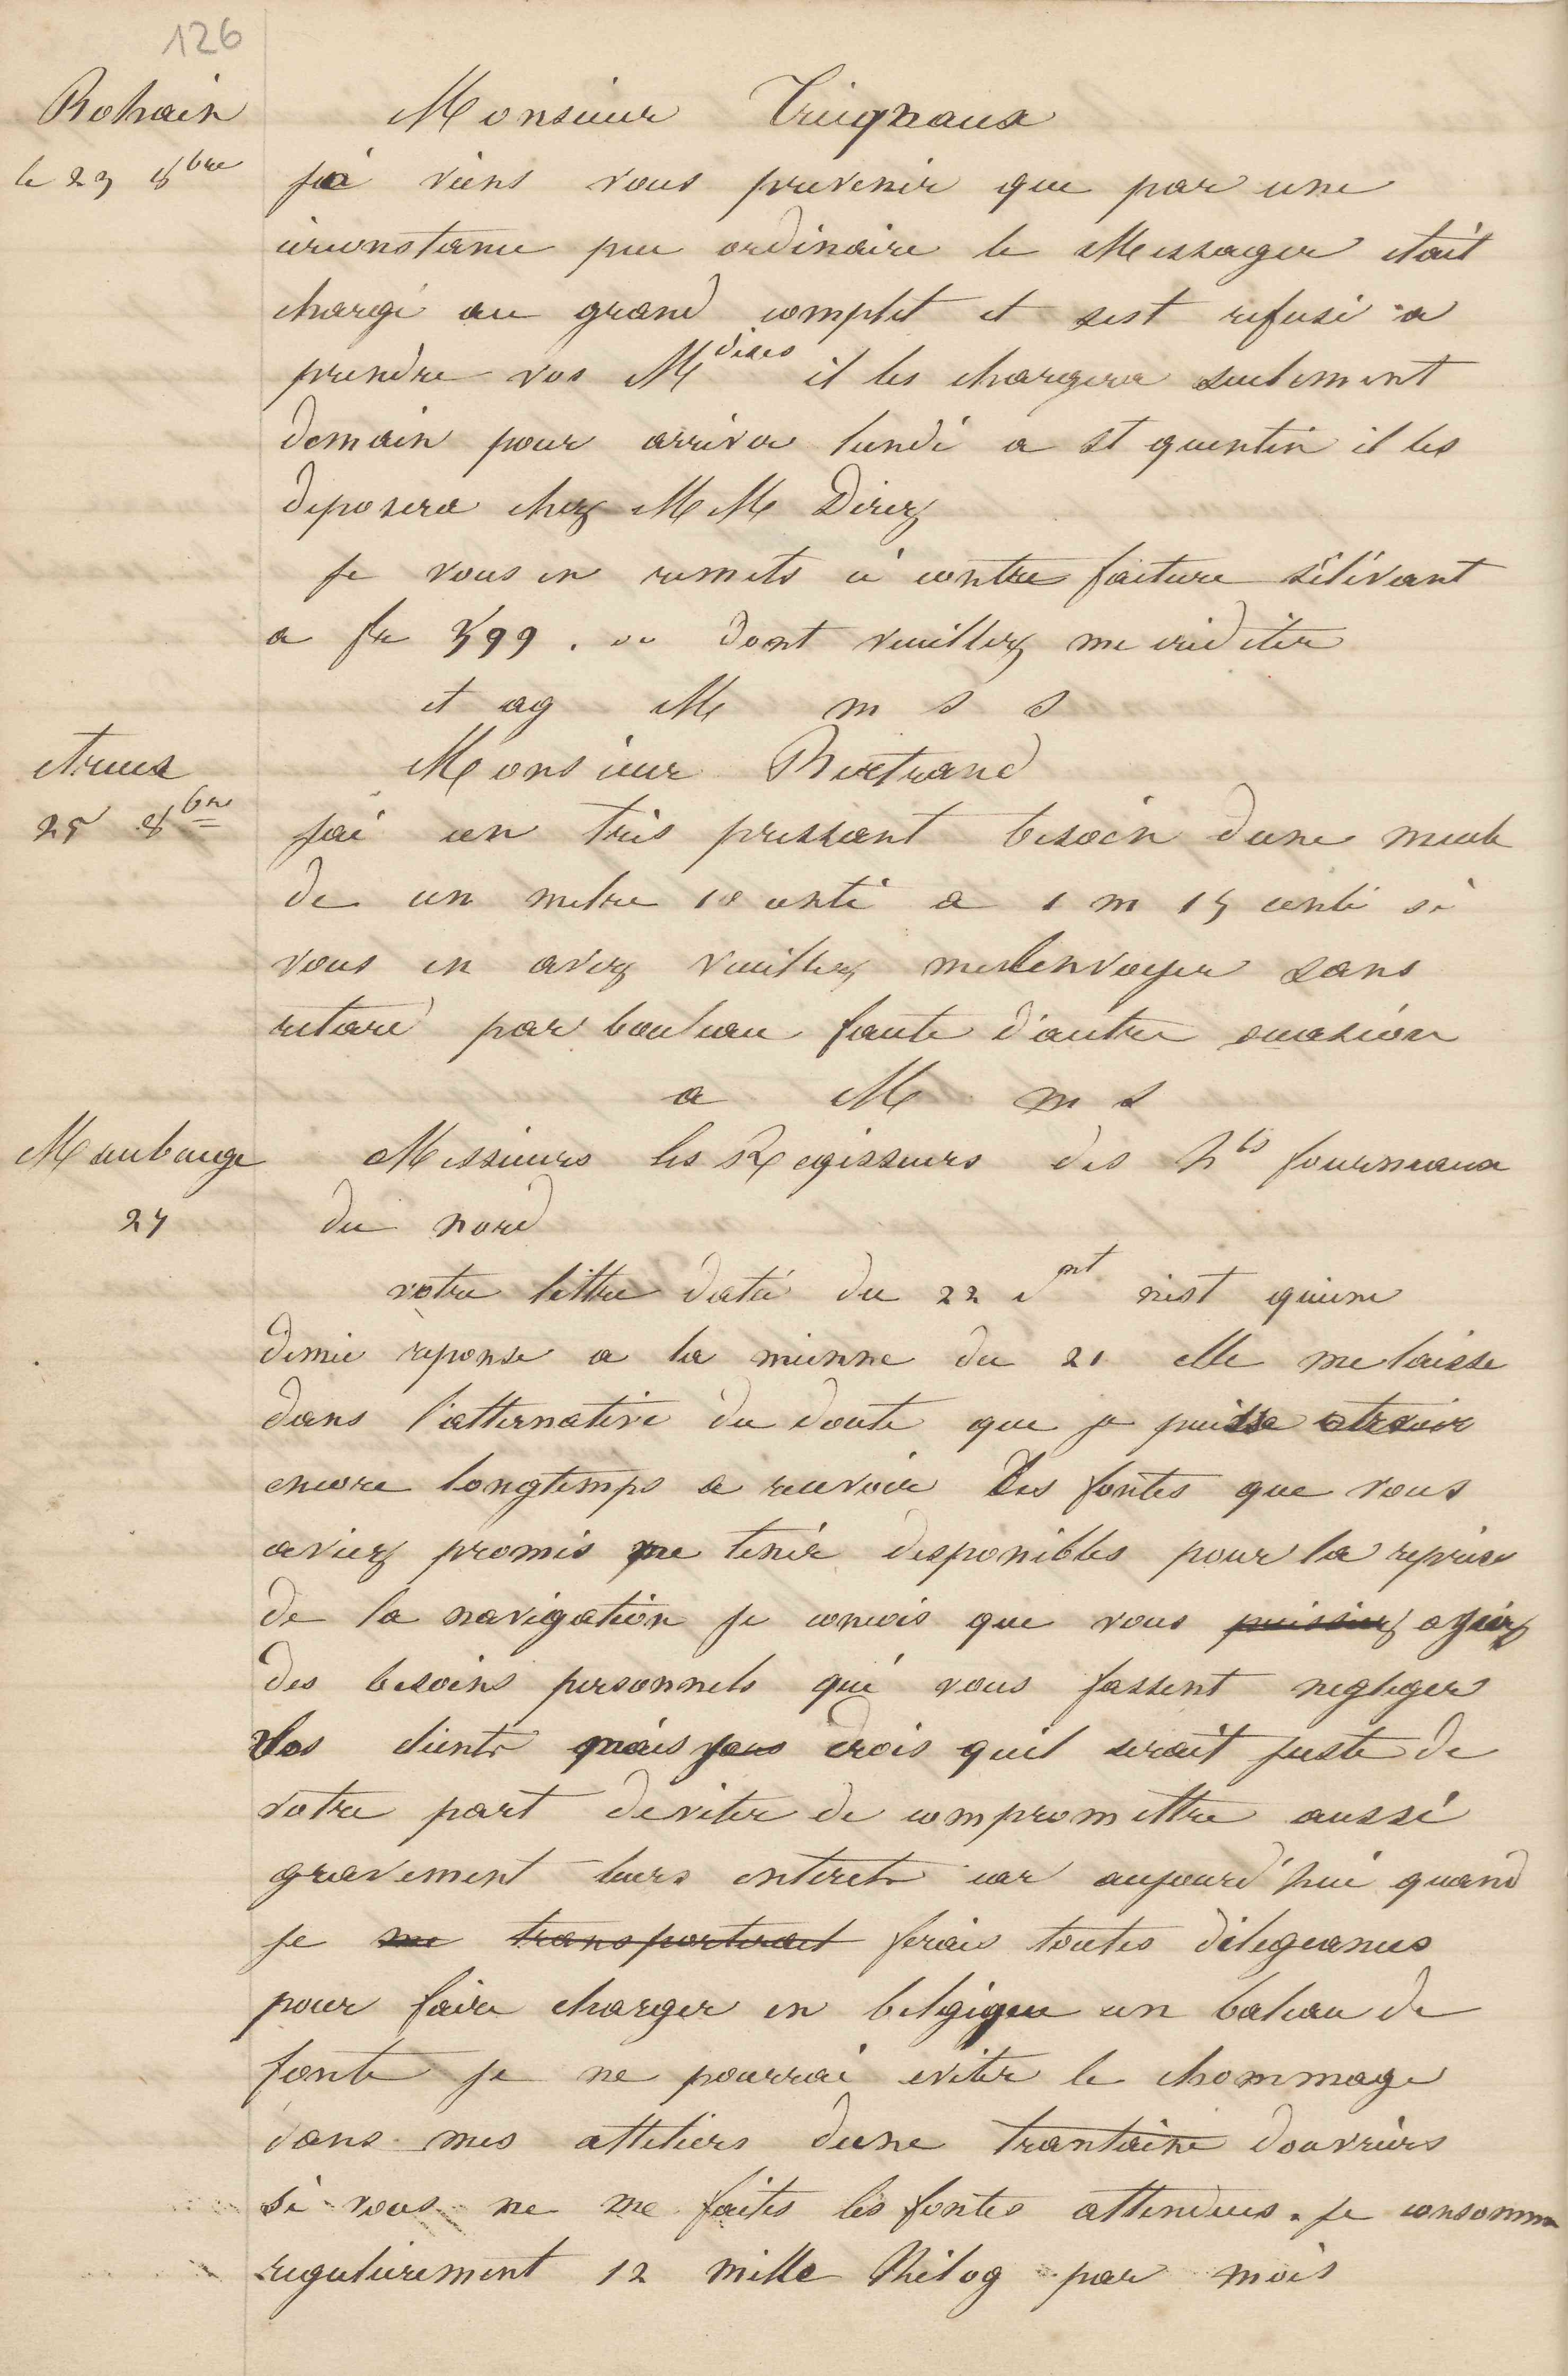 126
Bohain
le 23 8bre
Monsieur Truignaux
je viens vous prevenir que par une
circonstance peu ordinaire le Messager etait
chargé au grand complet et sest refusé a
prendre vos Mdises il les chargera seulement
demain pour arriver lundi a st quentin il les
deposera chez MM Direz
je vous en remets ci contre facture s'élévant
a fr 399 . oo dont veuillez me créditer
et ag M m s s
25 8bre
Monsieur Bertrand
jai un très pressant besoin dune meule
de un metre 10 centi a 1 m 15 centi si
vous en avez veuillez me lenvoyer sans
retard par bouleau faute d'autre occasion
a M m s
Maubeuge
27
Messieurs les Regisseurs des hts fourneaux
du nord
votre lettre daté du 22 ct nest quune
demie reponse a la mienne du 21 elle me laisse
dans l'atternative du doute que je puisse
encore longtemps a recevoir les fontes que vous
aviez promis me tenir disponibles pour la reprise
de la navigation je concois que vous puissiez ayiez
des besoins personnels qui vous fassent negliger
Vos clients mais je crois quil serait juste de
votre part deviter de compromettre aussi
gravement leurs interets car aujourd'hui quand
je me transporterait ferais toutes diligeances
pour faire charger en belgique un bateau de
fonte je ne pourrai eviter le chommage
dans mes atteliers dune trantaine douvriers
si vous ne me faites les fontes attendues. je consomme
regulierement 12 mille Kilog par mois